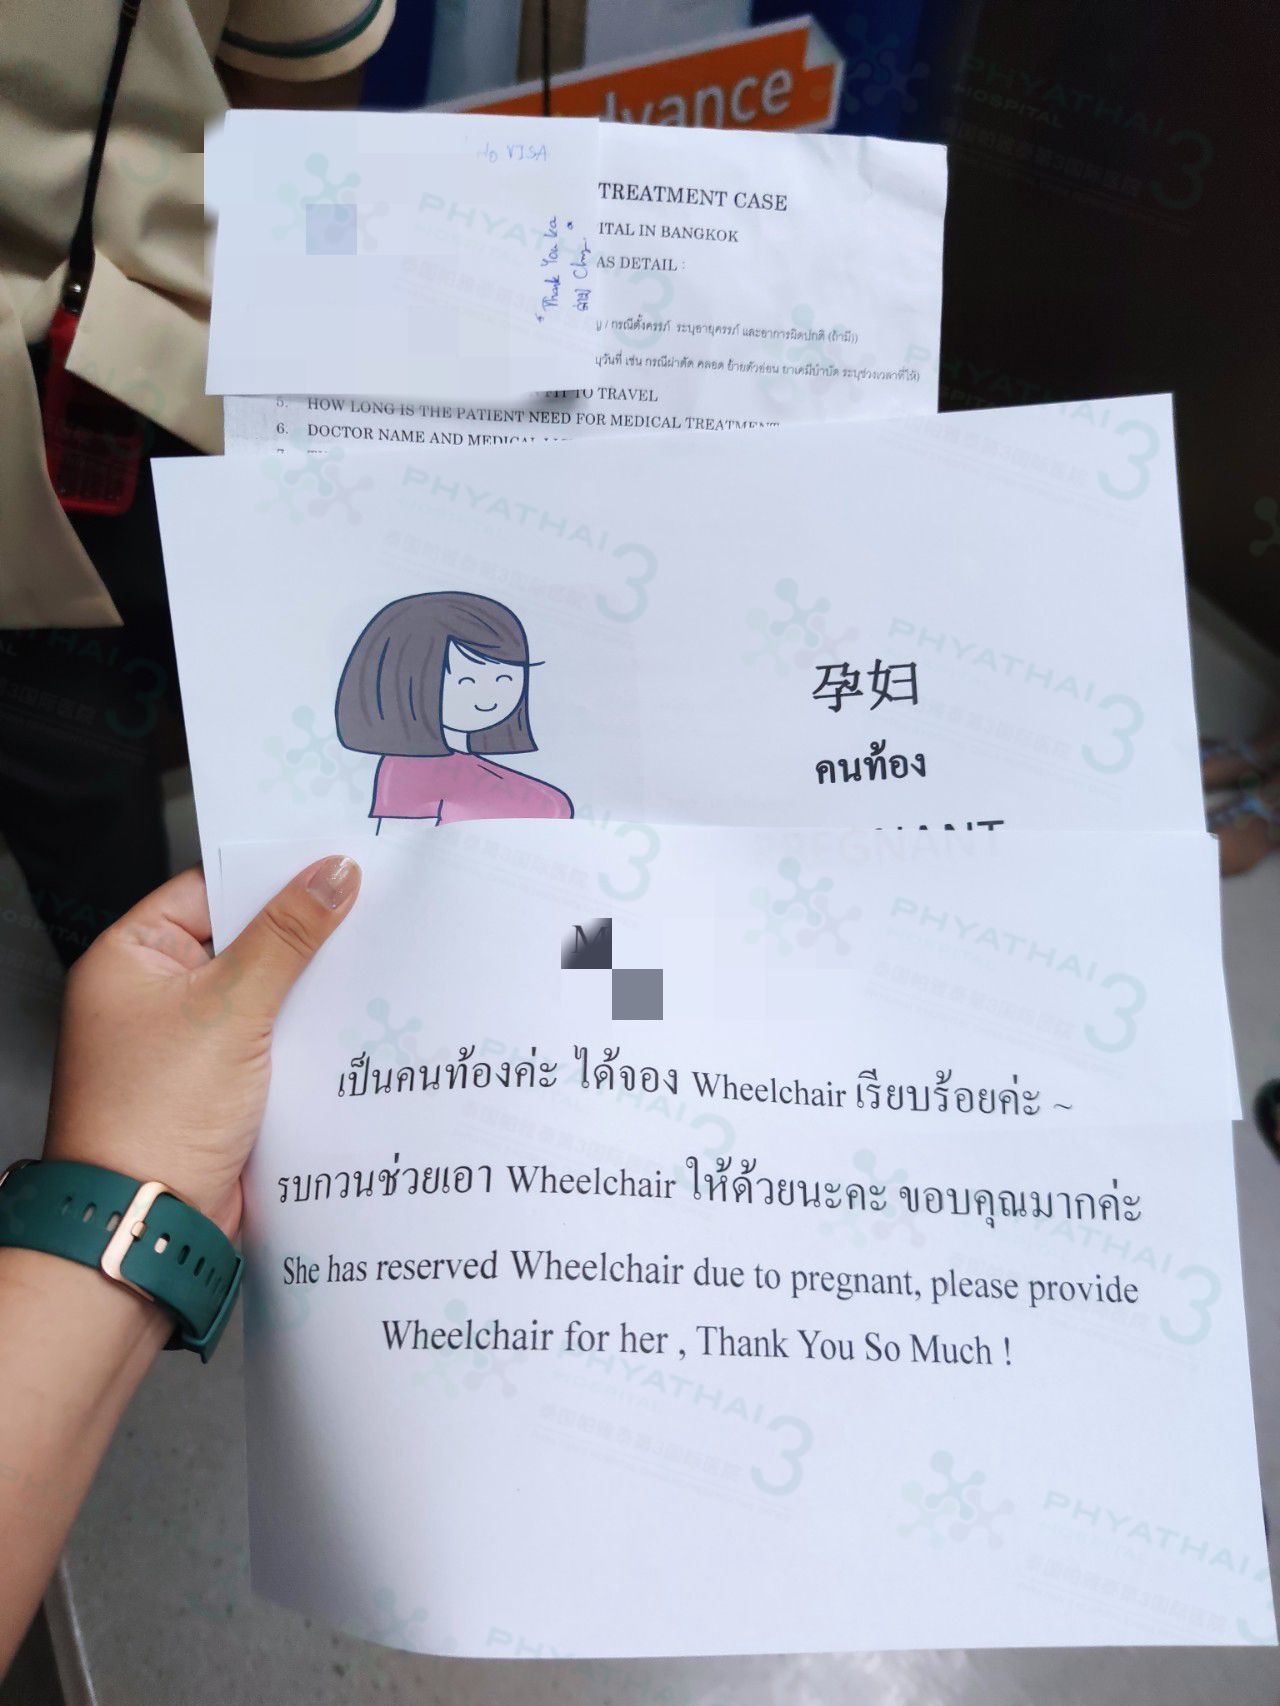 dvance
No VISA
TREATMENT CASE
ITAL IN BANGKOK
AS DETAIL :
* Thank You ka
/ กรณีตั้งครรภ์ ระบุอายุครรภ์ และอาการผิดปกติ (ถ้ามี))
วันที่ เช่น กรณีผ่าตัด คลอด ย้ายตัวอ่อน ยาเคมีบำบัด ระบุช่วงเวลาที่ให้)
TO TRAVEL
5. HOW LONG IS THE PATIENT NEED FOR MEDICAL TREATMENT
6. DOCTOR NAME AND
孕妇
คนท้อง
PREGNANT
M
เป็นคนท้องค่ะ ได้จอง Wheelchair เรียบร้อยค่ะ ~
รบกวนช่วยเอา Wheelchair ให้ด้วยนะคะ ขอบคุณมากค่ะ
She has reserved Wheelchair due to pregnant, please provide
Wheelchair for her , Thank You So Much !
PHYATHAI 3
HOSPITAL